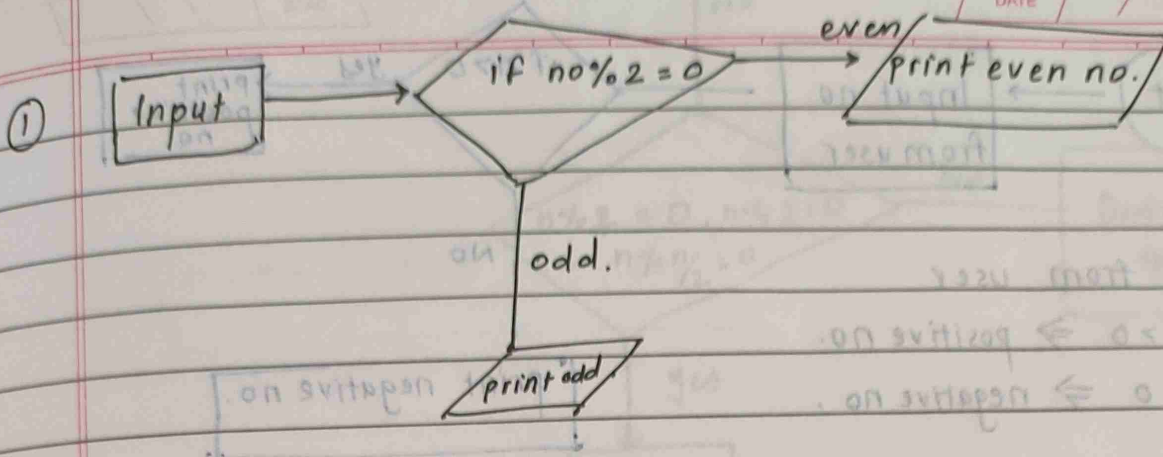 DATE
①
Input
if no%2=0
even
print even no.
odd.
print odd